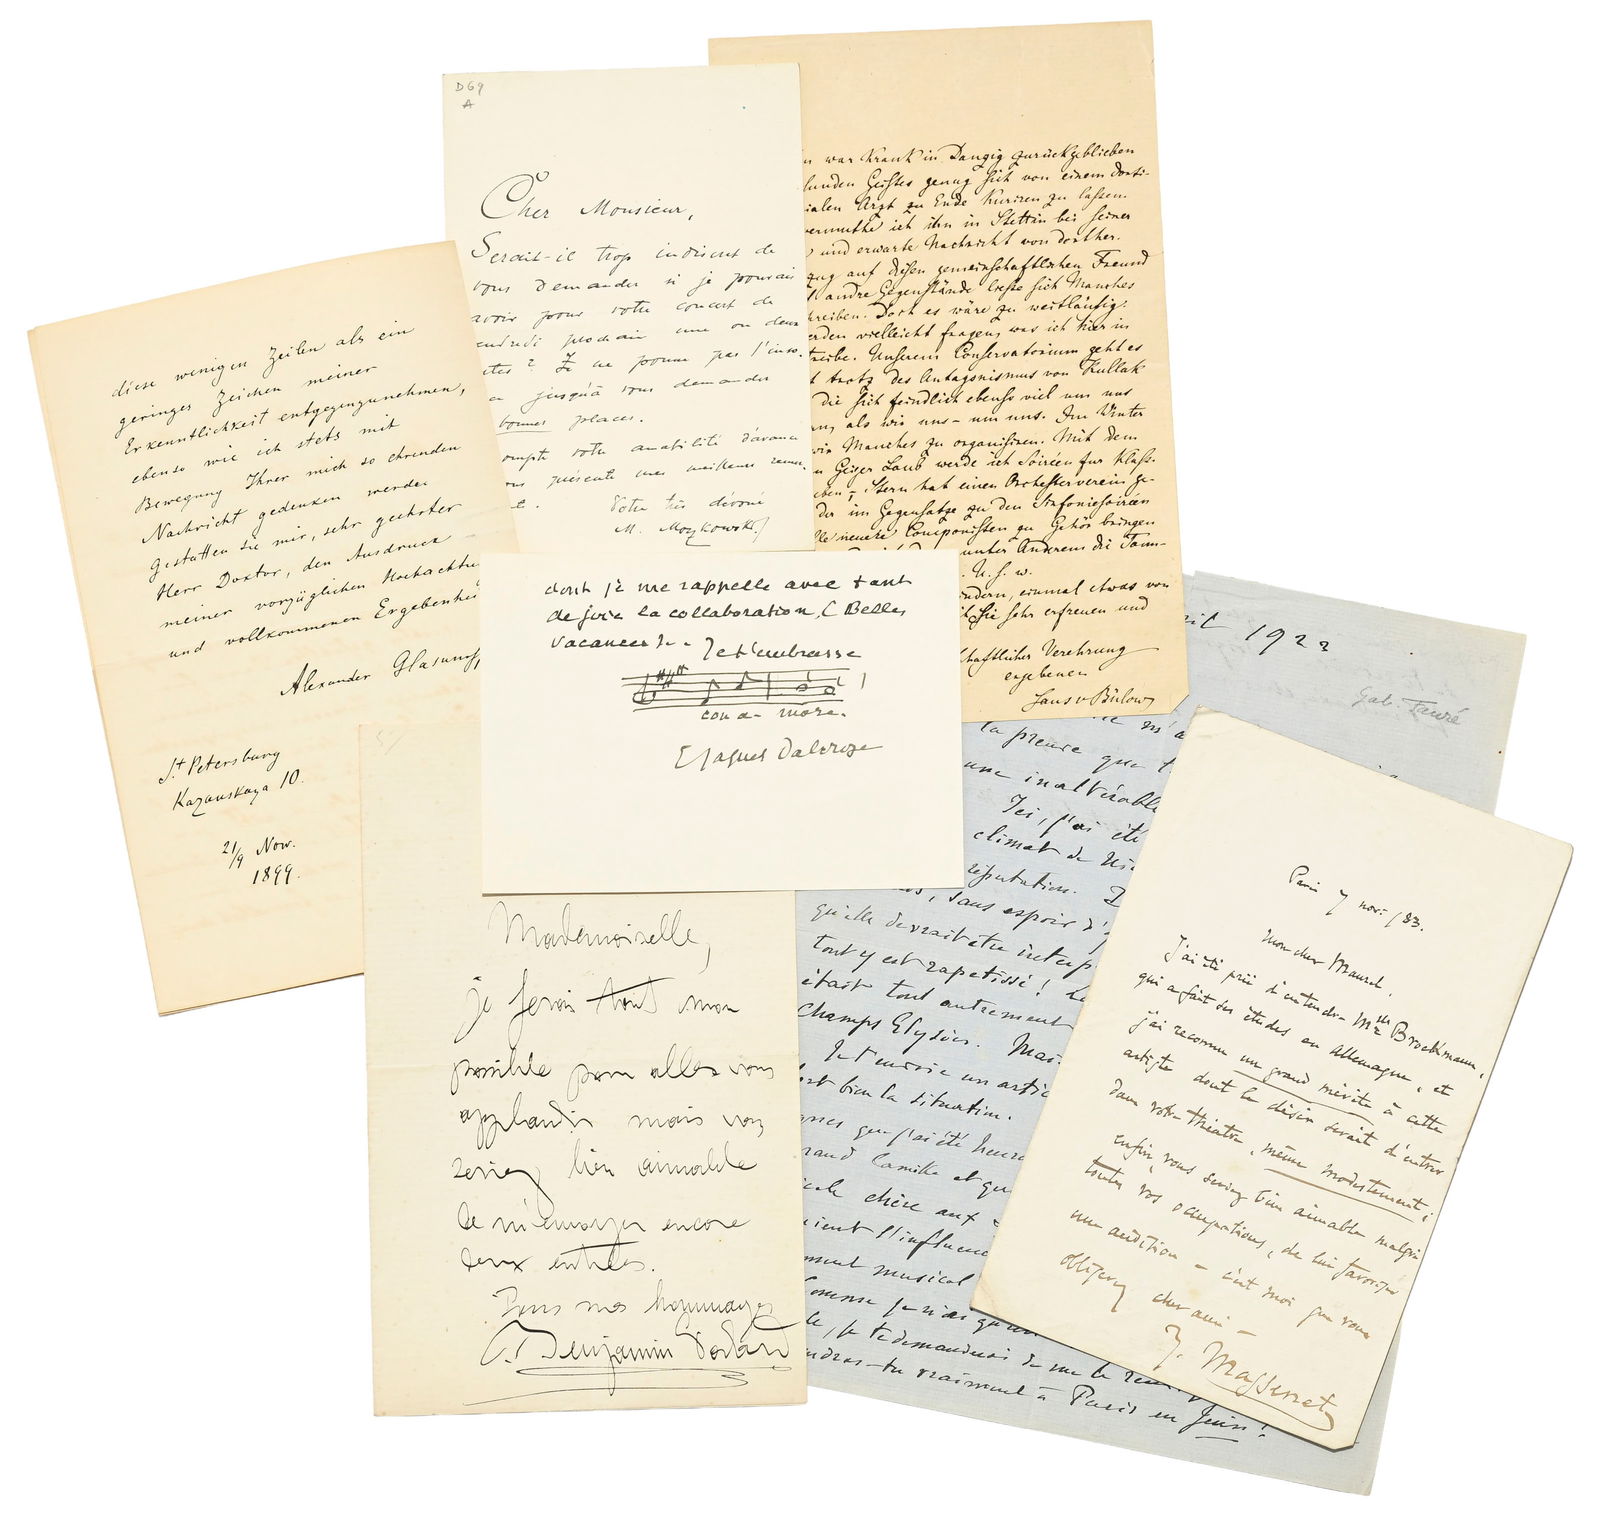 diese wenigen Zeilen als ein
geringes Zeichen meiner
Erkenntlichkeit entgegenzunehmen,
ebenso wie ich stets mit
Bewegung Ihrer mich so ehrenden
Nachricht gedenken werde
Gestatten Sie mir, sehr geehrter
Herr Doktor, den Ausdruck
meiner vorzüglichen Hochachtu
und vollkommenen Ergebenhei
Alexander Glasunof
St Petersburg
Kazanskaya 10.
21/9 Nov.
1899.
D69
A
Cher Monsieur,
Serait-il trop indiscret de
vous demander si je pourrais
avoir pour votre concert de
endredi prochain une ou deux
tes? Je ne pousse pas l'inso-
ce jusqu'à vous demander
bonnes places.
ompte votre amabilité d'avance
ous présente mes meilleurs remer-
Votre très dévoué
M. Moszkowski
n war krank in Danzig zurückgeblieben
sunden Geistes genug sich von einem dorti-
ialen Arzt zu Ende kuriren zu lassen.
vermuthe ich ihn in Stettin bei seiner
und erwarte Nachricht von dorther.
zug auf diesen gemeinschaftlichen Freund
andre Gegenstände liesse sich Manches
hreiben. Doch es wäre zu weitläufig.
erden vielleicht fragen, was ich hier in
treibe. Unserem Conservatorium geht es
t trotz des Antagonismus von Kullak
die sich feindlich ebenso viel um uns
als wir uns - um uns. Im Winter
wir Manches zu organisiren. Mit dem
n Geiger Laub werde ich Soiréen für Klass-
eben, Stern hat einen Orchesterverein ge-
der im Gegensatze zu den Sinfoniesoiréen
lle neuere Componisten zu Gehör bringen
unter Anderem die Tann-
U. s. w.
ndern, einmal etwas von
Sie sehr erfreuen und
schaftlicher Verehrung
ergebenen
Hans v Bülow
dont je me rappelle avec tant
de joie la collaboration (Belles
Vacances).
Je t'embrasse
con a- more.
E Jaques Dalcroze
Mademoiselle,
je ferai tout mon
possible pour aller vous
applaudir mais vous
seriez bien aimable
de m'envoyer encore
deux entrées.
Tous mes hommages
Benjamin Godard
1922
Gab. Fauré
m'a
la preuve que t
une inaltérable
Ici, j'ai été
climat de Ni
réputation.
, sans espoir d'
qu'elle devrait être interp
tout y est rapetissé! Le
était tout autrement
Champs Elysées. Mai
Je t'envoie un artic
ort bien la situation.
que j'ai été heure
rand Camille et qu
cole chère aux
ient l'influenc
ment musical
Comme je n'ai qu'un
le, je te demanderai de me le ren
ndras-tu vraiment à Paris en Juin!
Paris 7 nov: /83.
Mon cher Maurel,
J'ai été prié d'entendre Mlle Brockmann,
qui a fait ses études en Allemagne, et
j'ai reconnu un grand mérite à cette
artiste dont le désir serait d'entrer
dans votre théâtre, même modestement;
enfin, vous seriez bien aimable malgré
toutes vos occupations, de lui favoriser
une audition - c'est moi que vous
obligerez cher ami -
J. Massenet